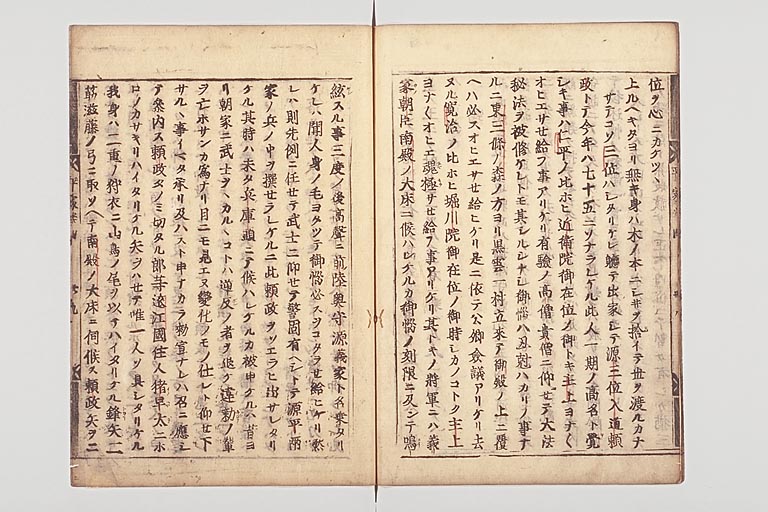 位ヲ心ニカケツヽ
上ルヘキタヨリ無キ身ハ木ノ本ニシヰヲ拾イテ世ヲ渡ルカナ
サテコソ三位ハシタリケレ軈テ出家シテ源三位入道頼
政トテ今年ハ七十五ニソナラレケル此人一期ノ高名ト覺
シキ事ハ仁平ノ比ホヒ近衛院御在位ノ御トキ主上ヨナ〱
オヒエサセ給フ事アリケリ有驗ノ高僧貴僧ニ仰セテ大法
秘法ヲ被修ケレトモ其シルシナシ御惱ハ丑剋ハカリノ事ナ
ルニ東三條ノ森ノ方ヨリ黒雲一村立來テ御殿ノ上ニ覆
ヘハ必スオヒエサセ給ヒケリ是ニ依テ公卿僉議アリケリ去
ヌル寛治ノ比ホヒ堀川院御在位ノ御時シカノコトク主上
ヨナ〱オヒエ魂極サセ給フ事アリケリ其トキノ將軍ニハ義
家朝臣南殿ノ大床ニ候ハレケルカ御惱ノ刻限ニ及シテ鳴
絃スル事三度ノ後高聲ニ前陸奥守源義家ト名乗タリ
ケレハ聞人身ノ毛ヨタツテ御惱必スヲコタラセ給ヒケリ然
レハ則先例ニ任セテ武士ニ仰セテ警固有ヘシトテ源平兩
家ノ兵ノ中ヲ撰セラレケルニ此頼政ヲソエラヒ出サレタリ
ケル其時ハ未タ兵庫頭ニテ候ハレケルカ被申ケルハ昔ヨ
リ朝家ニ武士ヲヽカルヽコトハ逆反ノ者ヲ退ケ違勅ノ輩
ヲ亡ホサンカ爲ナリ目ニモ見エヌ變化ノモノ仕レト仰セ下
サルヽ事イマタ承リ及ハスト申ナカラ勅宣ナレハ召ニ應シ
テ參内ス頼政タノミ切タル郎等遠江國住人猪早太ニホ
ロノカサキリハイタリケル矢ヲハセテ唯一人ソ具シタリケル
我身ハ二重ノ狩衣ニ山鳥ノ尾ヲ以テハイタリケル鋒矢二
筋滋藤ノ弓ニ取ソヘテ南殿ノ大床ニ伺候ス頼政矢ヲ二